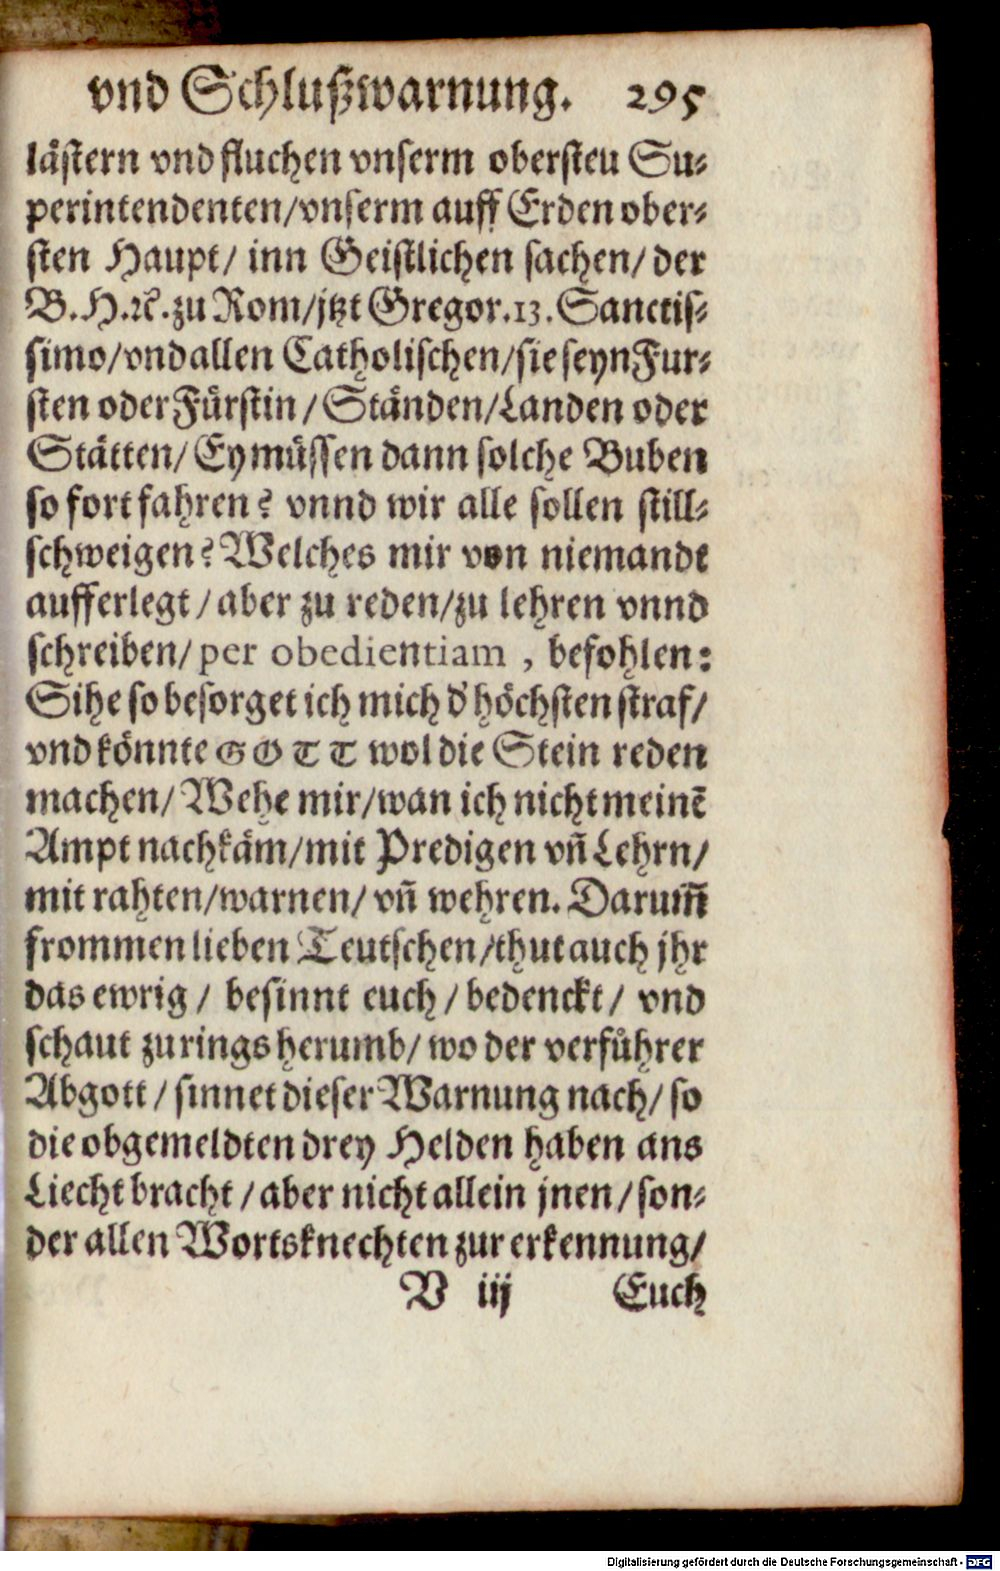 vnd Schlußwarnung. 295
lästern vnd fluchen vnserm obersteu Su⸗
perintendenten/vnserm auff Erden ober⸗
sten Haupt/ inn Geistlichen sachen/ der
B. H. ꝛc. zu Rom/jtzt Gregor. 13. Sanctis⸗
simo/vnd allen Catholischen/sie seyn Fur⸗
sten oder Fürstin/ Ständen/Landen oder
Stätten/ Ey müssen dann solche Buben
so fort fahren? vnnd wir alle sollen still⸗
schweigen? Welches mir von niemandt
aufferlegt/ aber zu reden/zu lehren vnnd
schreiben/ per obedientiam , befohlen:
Sihe so besorget ich mich d' höchsten straf/
vnd könnte GOTT wol die Stein reden
machen/ Wehe mir/wan ich nicht meinē
Ampt nachkäm/mit Predigen vñ Lehrn/
mit rahten/warnen/ vñ wehren. Darum̃
frommen lieben Teutschen/thut auch jhr
das ewrig/ besinnt euch/ bedenckt/ vnd
schaut zu rings herumb/ wo der verfuͤhrer
Abgott/ sinnet dieser Warnung nach/ so
die obgemeldten drey Helden haben ans
Liecht bracht/ aber nicht allein jnen/ son⸗
der allen Wortsknechten zur erkennung/
V iij Euch
Digitalisierung gefördert durch die Deutsche Forschungsgemeinschaft - DFG